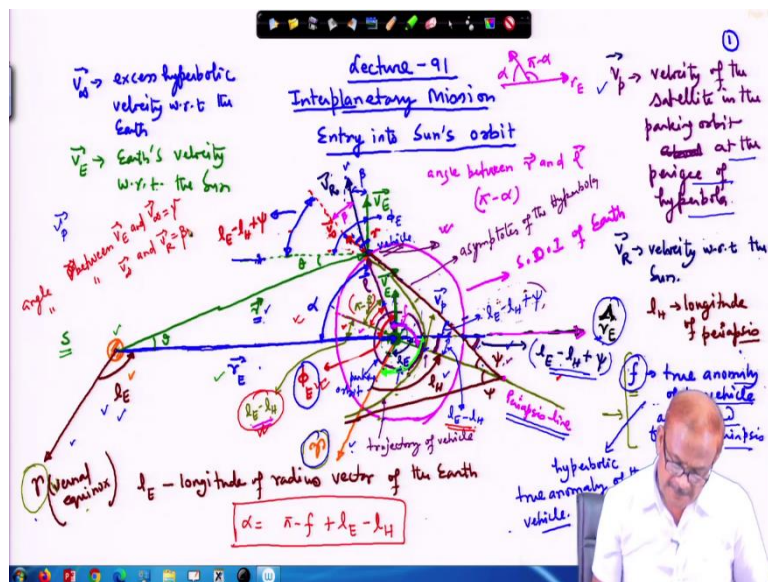 ①
Lecture-91
Interplanetary Mission
Entry into Sun's orbit
V∞ → excess hyperbolic
velocity w.r.t the
Earth
V_E → Earth's velocity
w.r.t. the Sun
V_p
angle between V_E and V∞ = γ
angle " V_E and V_R = β
α π-α r_E
V_p → velocity of the
satellite in the
parking orbit
at the
perigee of
hyperbola.
V_R → velocity w.r.t the
Sun.
l_H → longitude
of periapsis
angle between r and l
(π-α)
asymptotes of the hyperbola
S.O.I of Earth
l_E-l_H+ψ
V_R
β
V_E
φ_E
V∞
γ
vehicle
θ
r
α
l
V_E
V_p
l_E-l_H+ψ
S
θ
r_E
r_E
(l_E-l_H+ψ)
ψ
ψ
l_E
l_E
l_H
parking
orbit
φ_E
l_E-l_H
l_E-l_H
Periapsis-line
trajectory of vehicle
γ
f → true anomaly
of the vehicle
periapsis
hyperbolic
true anomaly of
vehicle.
γ (vernal
equinox)
l_E - longitude of radius vector of the Earth
α = π - f + l_E - l_H